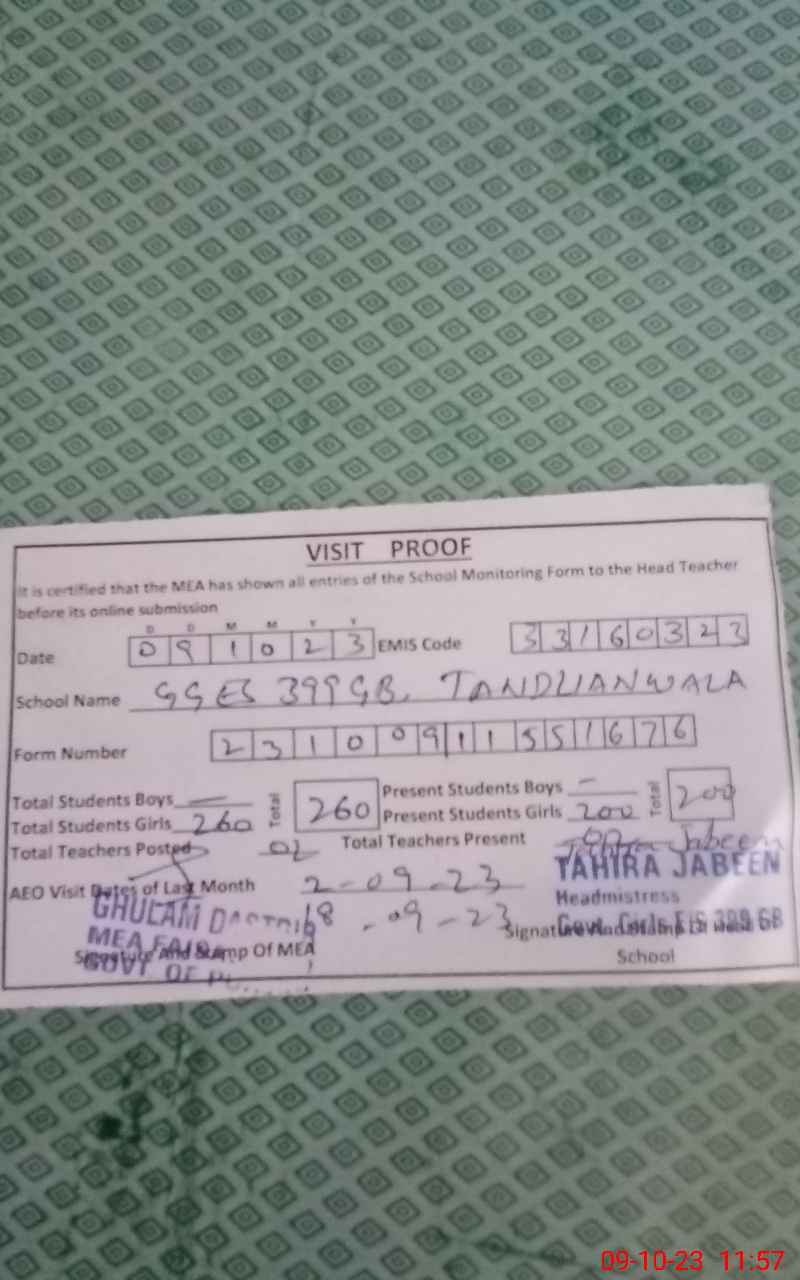 VISIT PROOF
It is certified that the MEA has shown all entries of the School Monitoring Form to the Head Teacher
before its online submission
D D M M Y Y
Date 0 9 1 0 2 3 EMIS Code 3 3 1 6 0 3 2 3
School Name GGES 399 GB, TANDLIANWALA
Form Number 2 3 1 0 0 9 1 1 5 5 1 6 7 6
Total Students Boys — Total 260 Present Students Boys — Total 200
Total Students Girls 260 Present Students Girls 200
Total Teachers Posted 02 Total Teachers Present 02
Tahira Jabeen
AEO Visit Dates of Last Month 2-09-23
18-09-23
TAHIRA JABEEN
Headmistress
Govt. Girls E/S 399 GB
GHULAM
MEA
GOVT OF
Signature and Stamp Of MEA
Signature And Stamp Of
School
09-10-23 11:57